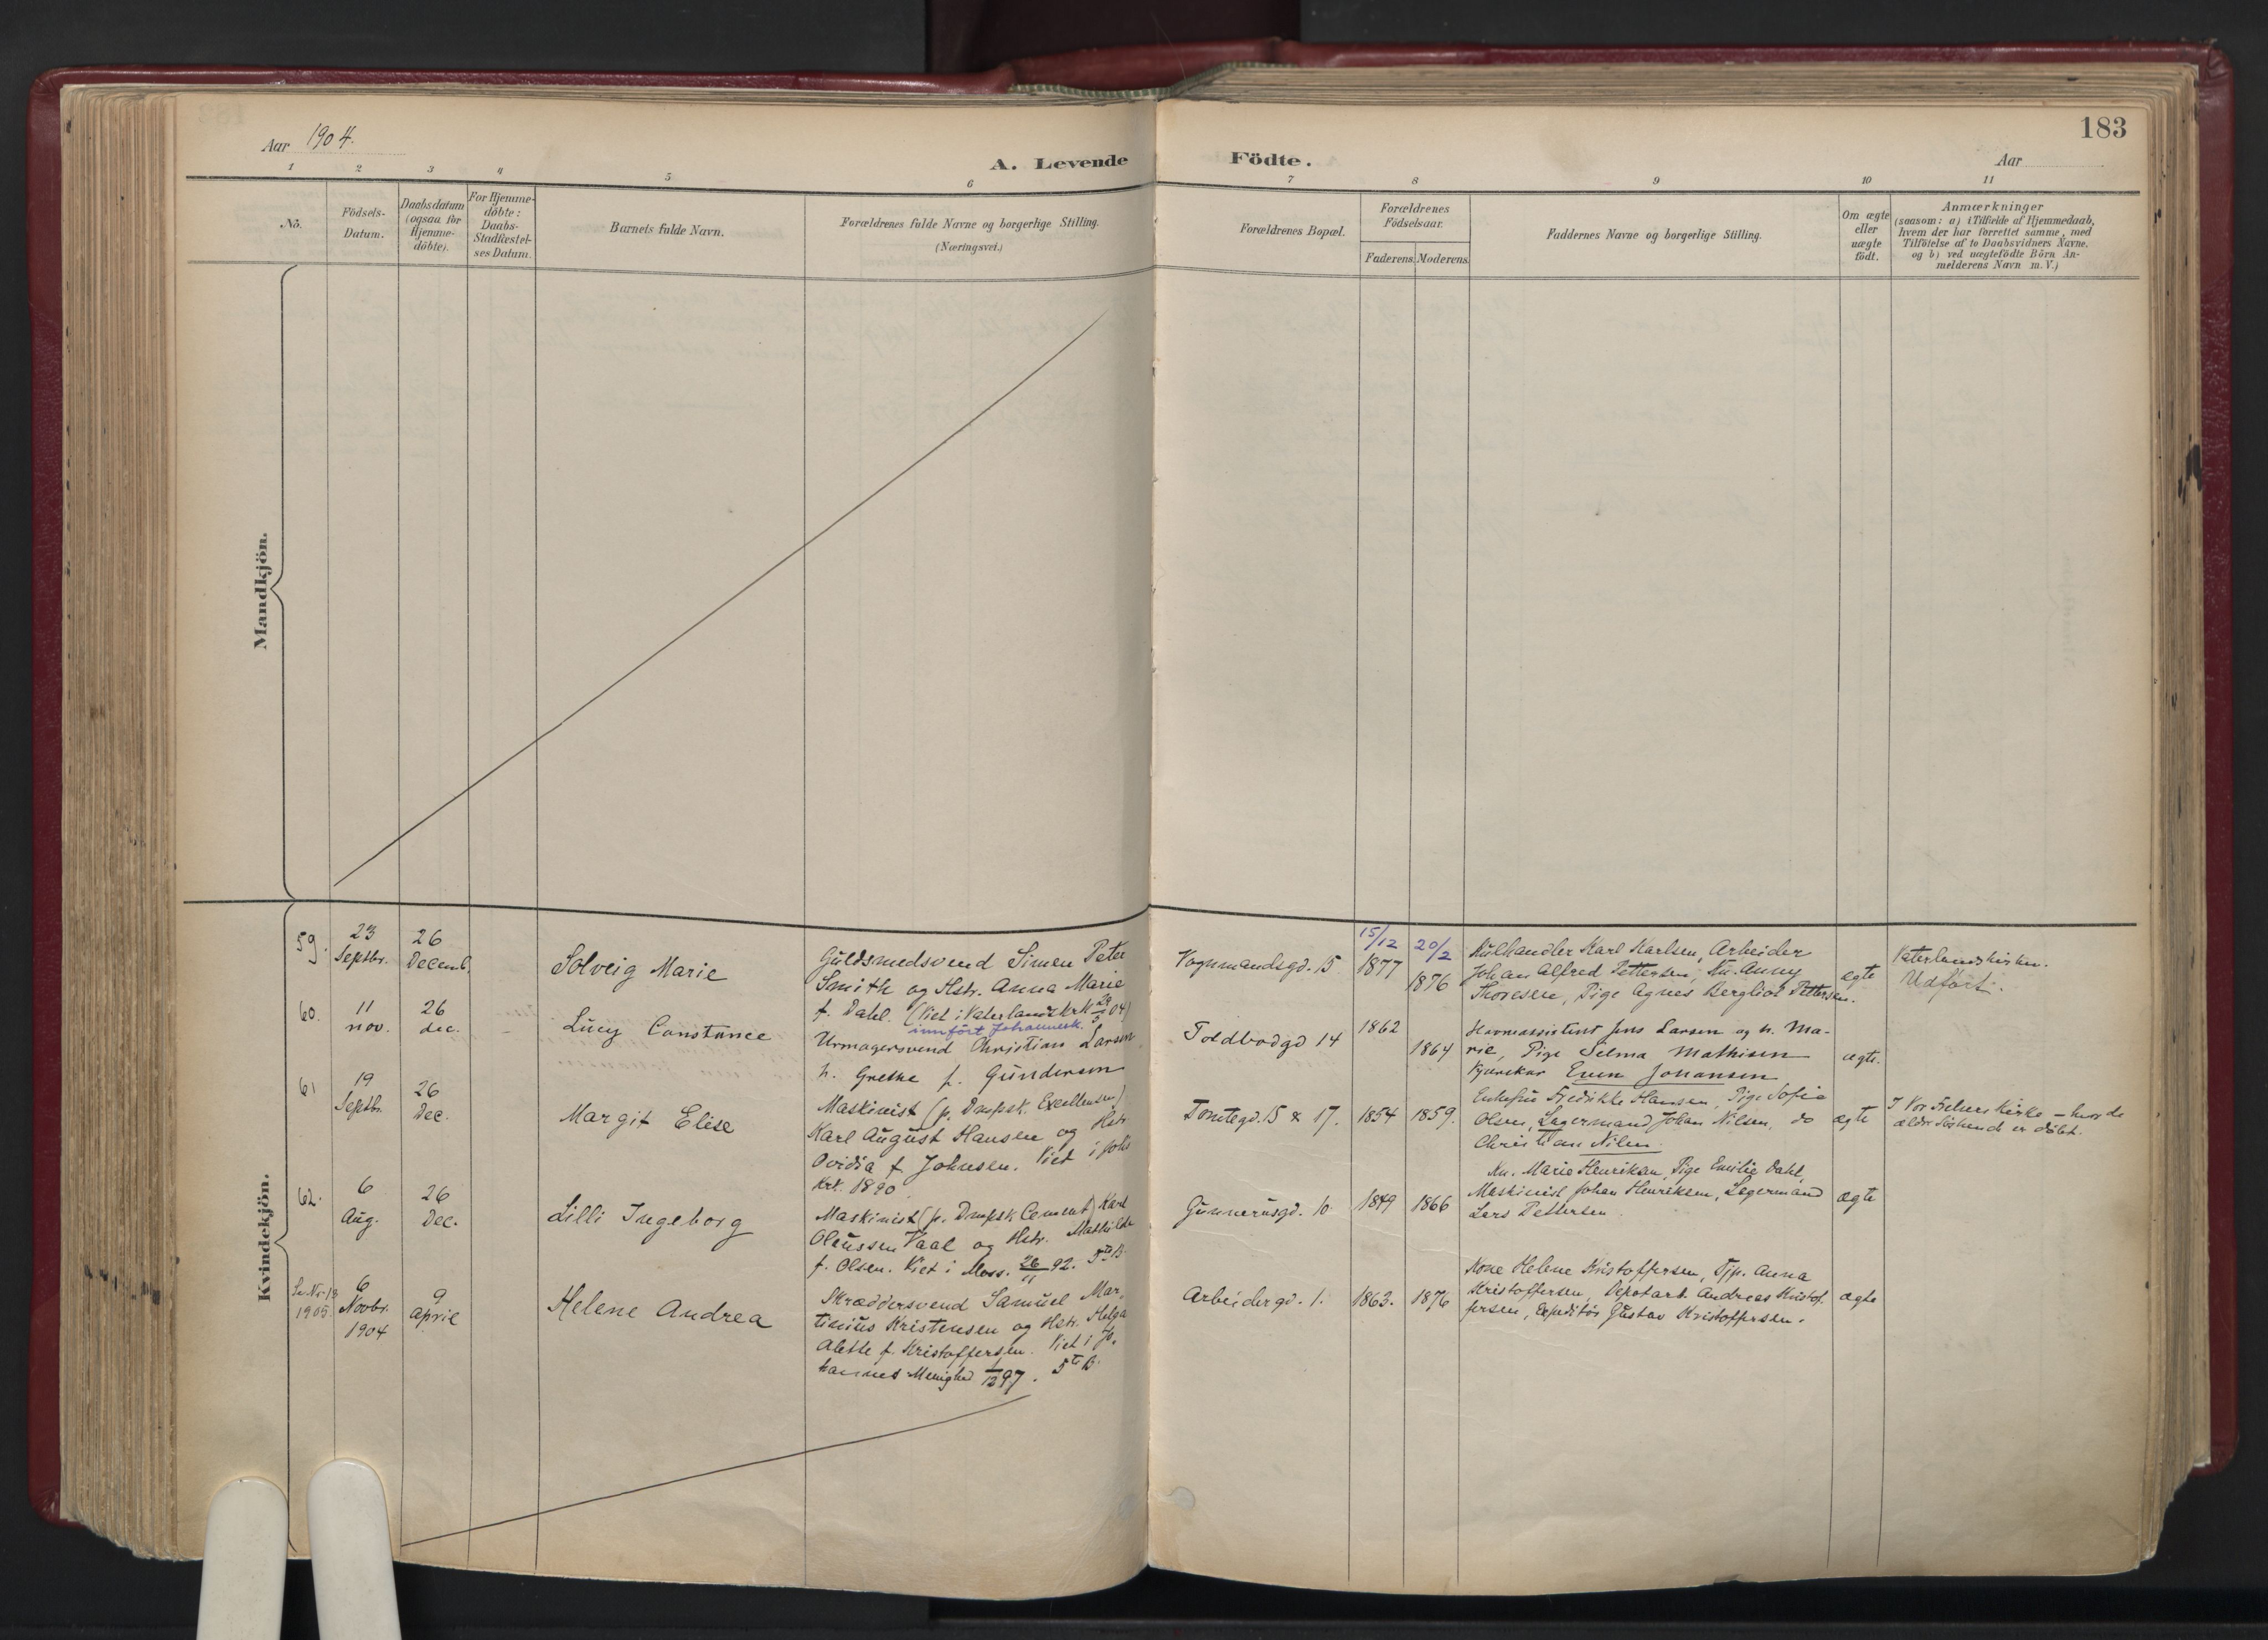 183
Aar 1904.
A. Levende Födte.
Aar
1 2 3 4 5 6 7 8 9 10 11
No.
Födsels-
Datum.
Daabsdatum
(ogsaa for
Hjemme-
döbte).
For Hjemme-
döbte:
Daabs-
Stadfæstel-
ses Datum.
Barnets fulde Navn.
Forældrenes fulde Navne og borgerlige Stilling.
(Næringsvei.)
Forældrenes Bopæl.
Forældrenes
Födselsaar.
Faderens. Moderens.
Faddernes Navne og borgerlige Stilling.
Om ægte
eller
uægte
födt.
Anmærkninger
(saasom: a) i Tilfælde af Hjemmedaab,
hvem der har forrettet samme, med
Tilföielse af to Daabsvidners Navne,
og b) ved uægtefödte Börn An-
melderens Navn m.V.)
Mandkjön.
Kvindekjön.
59.
23
Septbr.
26
Decemb.
Solveig Marie
Guldsmedsvend Simen Peter
Smith og Hstr. Anna Marie
f. Dahl. (Viet i Vaterlandsk 04)
innført Johannesk.
Vognmandsgd. 15
15/12
1877
20/2
1876
Kulhandler Karl Karlsen, Arbeider
Johan Alfred Pettersen, Ku. Anny
Thoresen, Pige Agnes Bergliot Pettersen.
ægte
Vaterlandskirken.
Udført.
60.
11
nov.
26
dec.
Lucy Constance
Urmagersvend Christian Larsen
h. Grethe f. Gundersen
Toldbodgd 14
1862
1864
Havneassistent Jens Larsen og h. Ma-
rie, Pige Selma Mathisen
Even Johansen
ægte.
61
19
Septbr.
26
Dec.
Margit Elise
Maskinist (p. Dmpsk. Excellensen)
Karl August Hansen og Hstr.
Ovidia f. Johnsen. Viet i Johs
Krk. 1890
Tomtegd. 15 & 17.
1854
1859.
Enkefru Fredrikke Hansen, Pige Sofie
Olsen, Lagermand Johan Nilsen, do
Christian Nilsen.
ægte
I Vor Frelsers Kirke – hvor de
ældre Söskende er döbt.
62.
6
Aug.
26
Dec.
Lilli Ingeborg
Maskinist (p. Dmpsk Cement) Karl
Olaussen Vaal og Hstr. Mathilde
f. Olsen. Viet i Moss. 26/11 92. 5te B.
Gunnerusgd. 10
1849
1866
Ku. Marie Henriksen, Pige Emilie Dahl,
Maskinist Johan Henriksen, Lagermand
Lars Pettersen.
ægte
Se No 13
1905.
6
Novbr.
1904
9
April
Helene Andrea
Skræddersvend Samuel Mar-
tinius Kristensen og Hstr. Helga
Alette f. Kristoffersen. Viet i Jo-
hannes Menighed 1/12 97. 5te B.
Arbeidergd. 1.
1863.
1876
Kone Helene Kristoffersen, Tjp. Anna
Kristoffersen, Depotarb. Andreas Kristof-
fersen, Expeditör Gustav Kristoffersen.
ægte